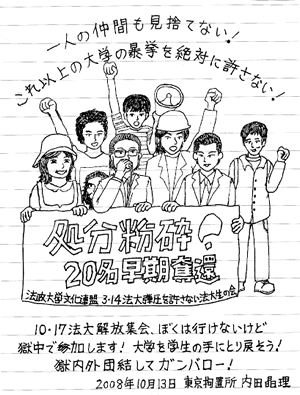 一人の仲間も見捨てない!
これ以上の大学の暴挙を絶対に許さない!
処分粉砕!
20名早期奪還
法政大学文化連盟 3・14法大弾圧を許さない法大生の会
10・17法大解放集会、ぼくは行けないけど
獄中で参加します! 大学を学生の手にとり戻そう!
獄内外団結してガンバロー!
2008年10月13日 東京拘置所 内田晶理